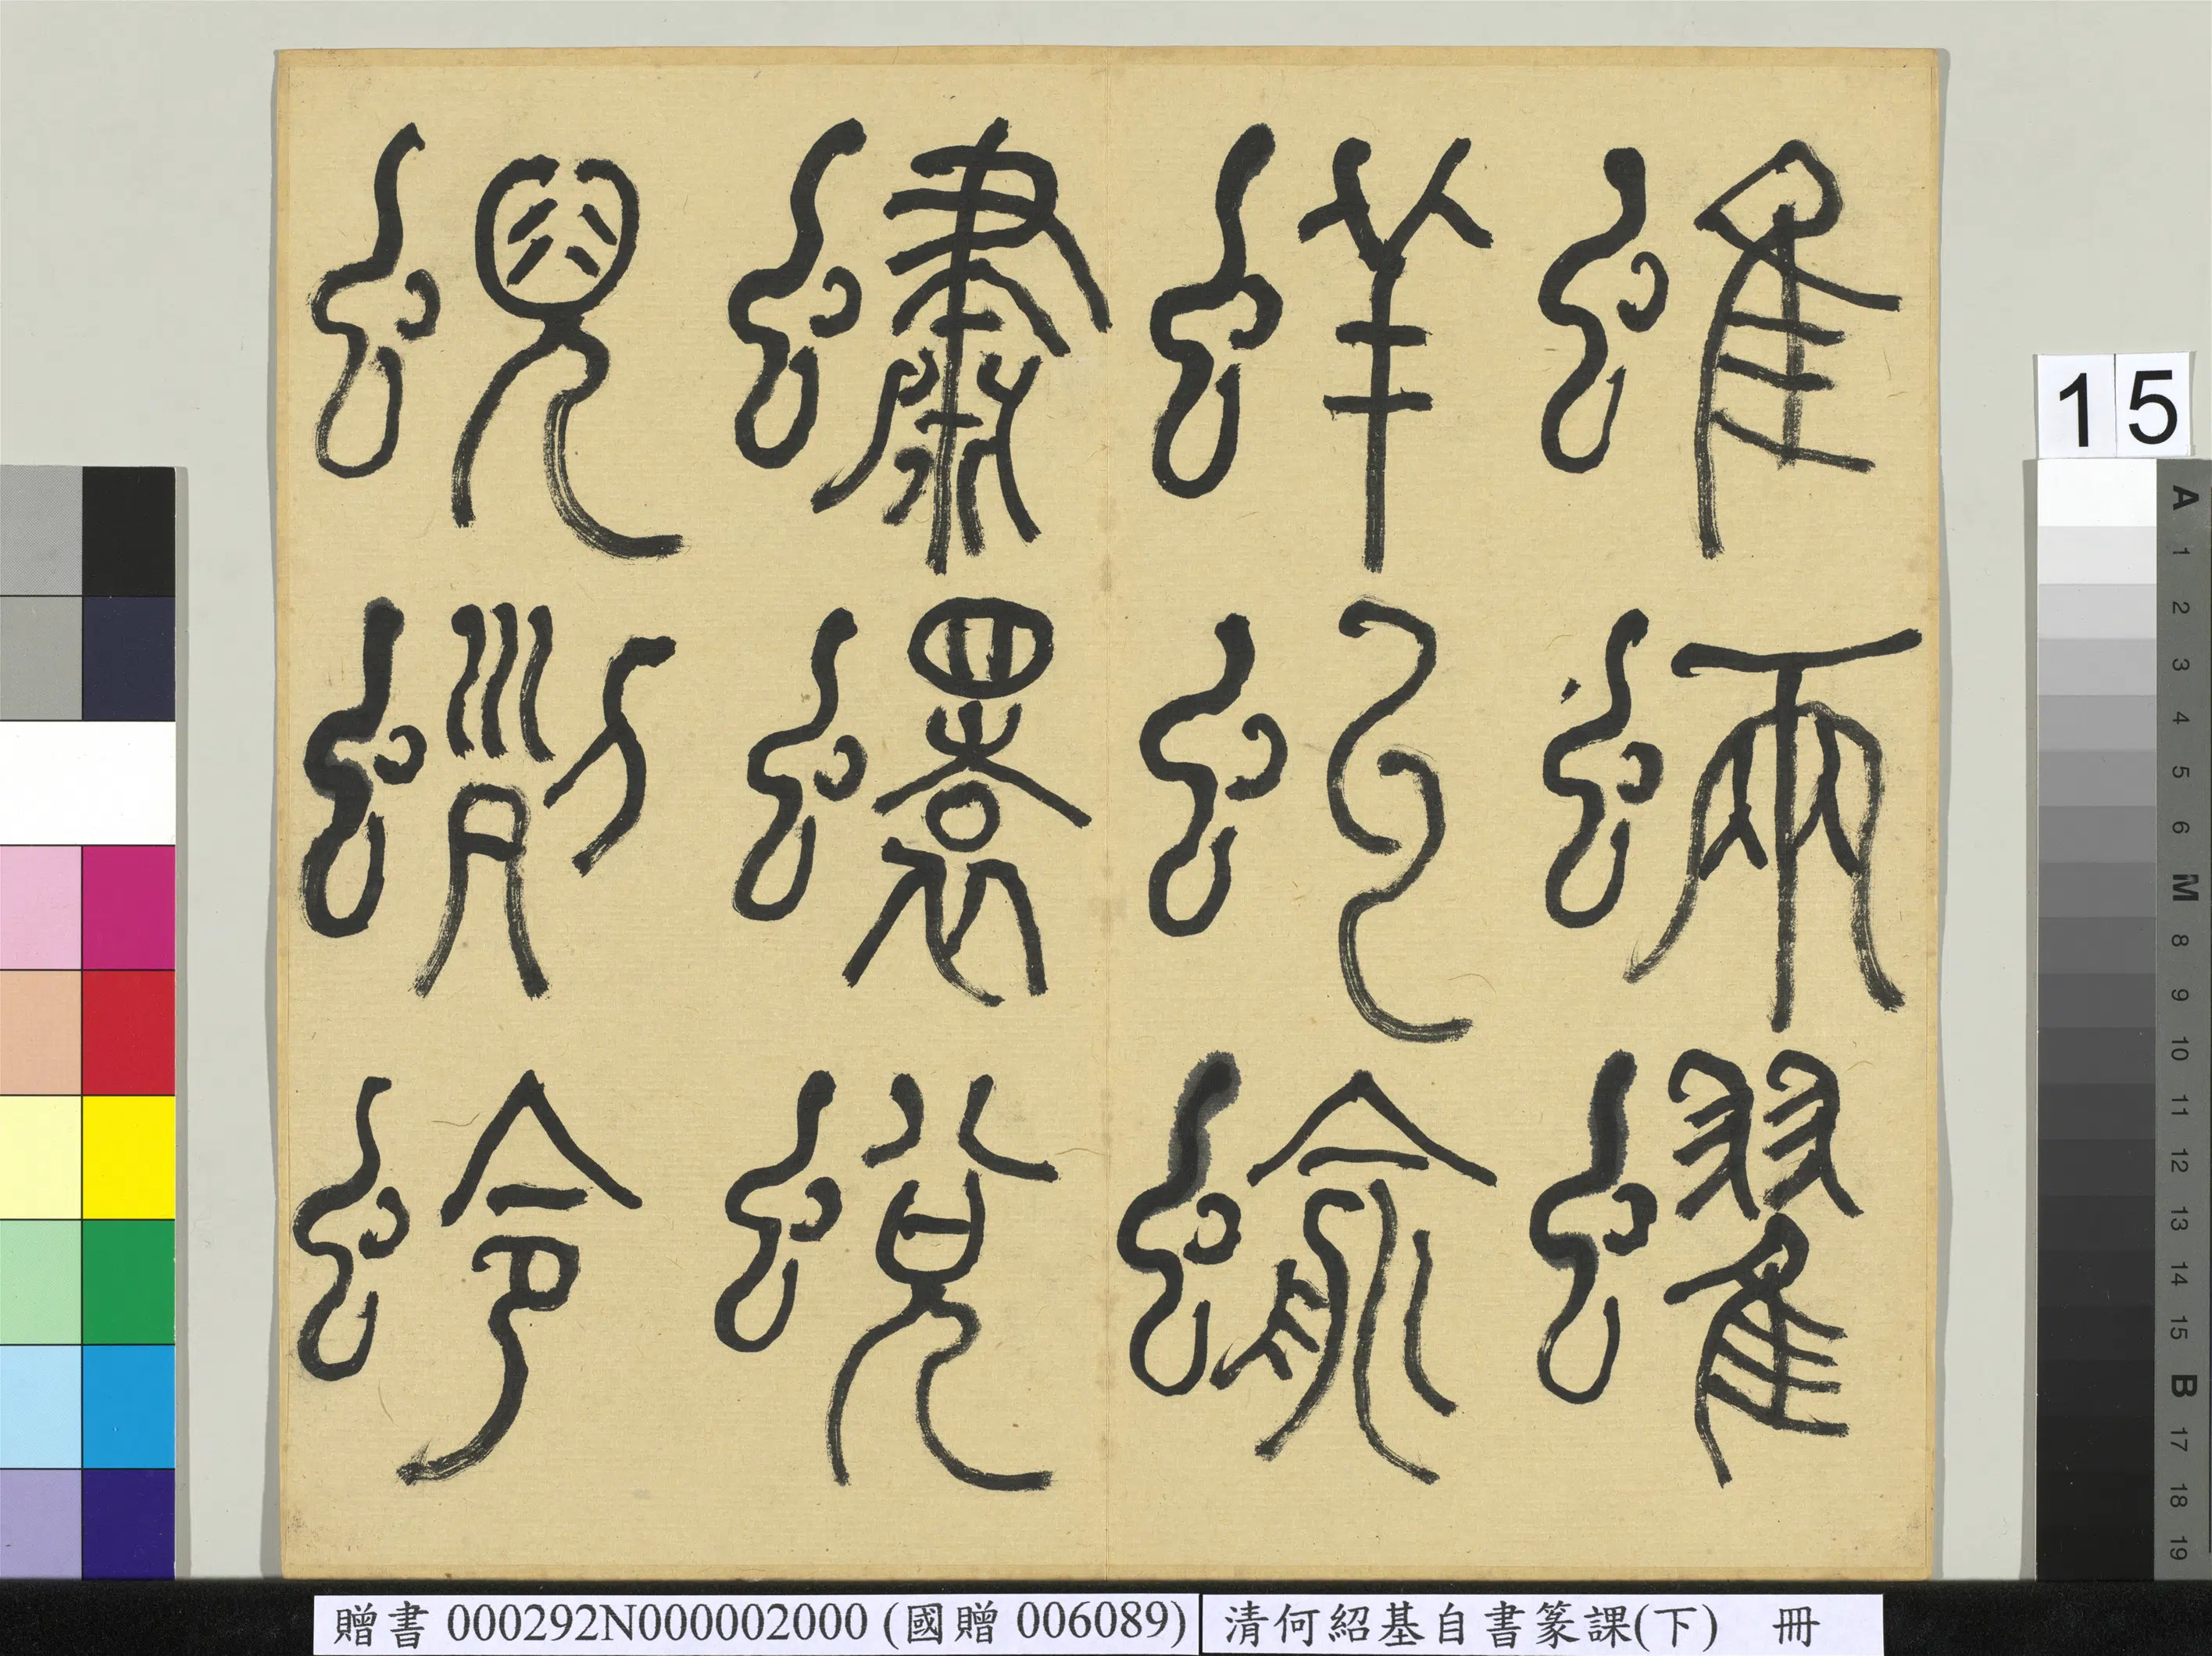 蜼蜽蠗
蛘虯蝓
蟰蠉蛻
蜺蛚蛉
15
A 1 2 3 4 5 6 M 8 9 10 11 12 13 14 15 B 17 18 19
贈書 000292N000002000 (國贈 006089)
清何紹基自書篆課(下) 冊